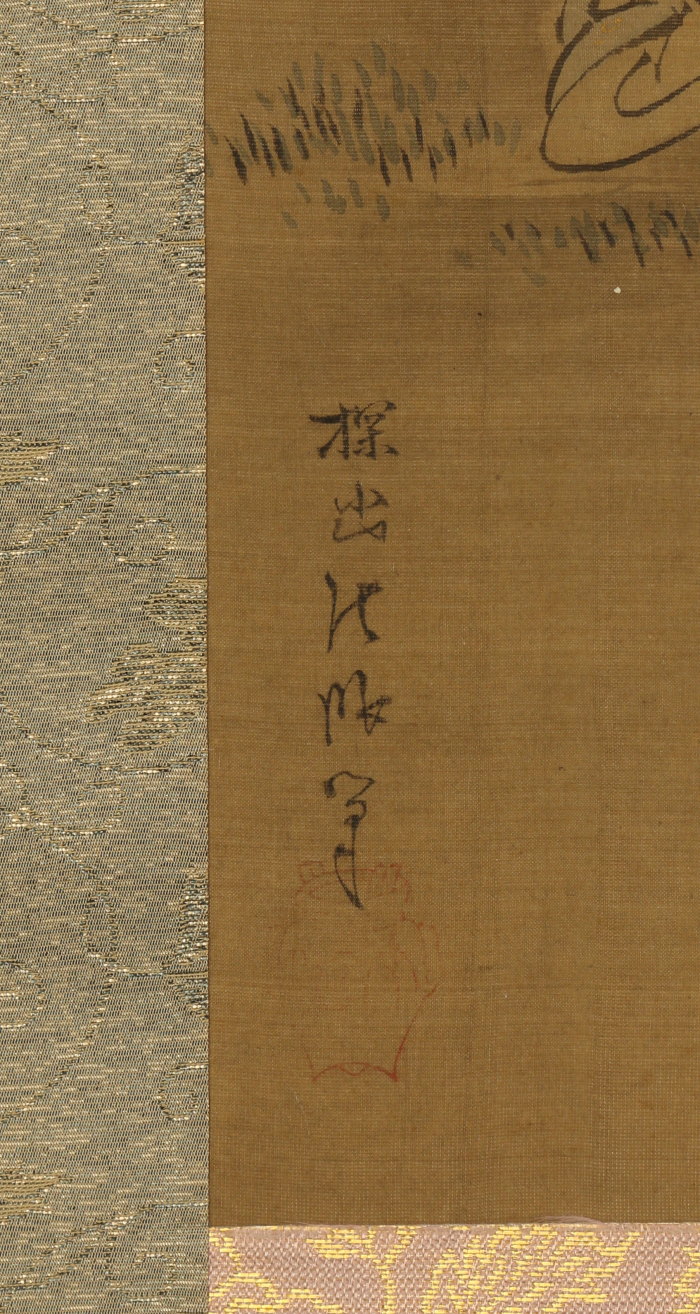 探幽法眼筆